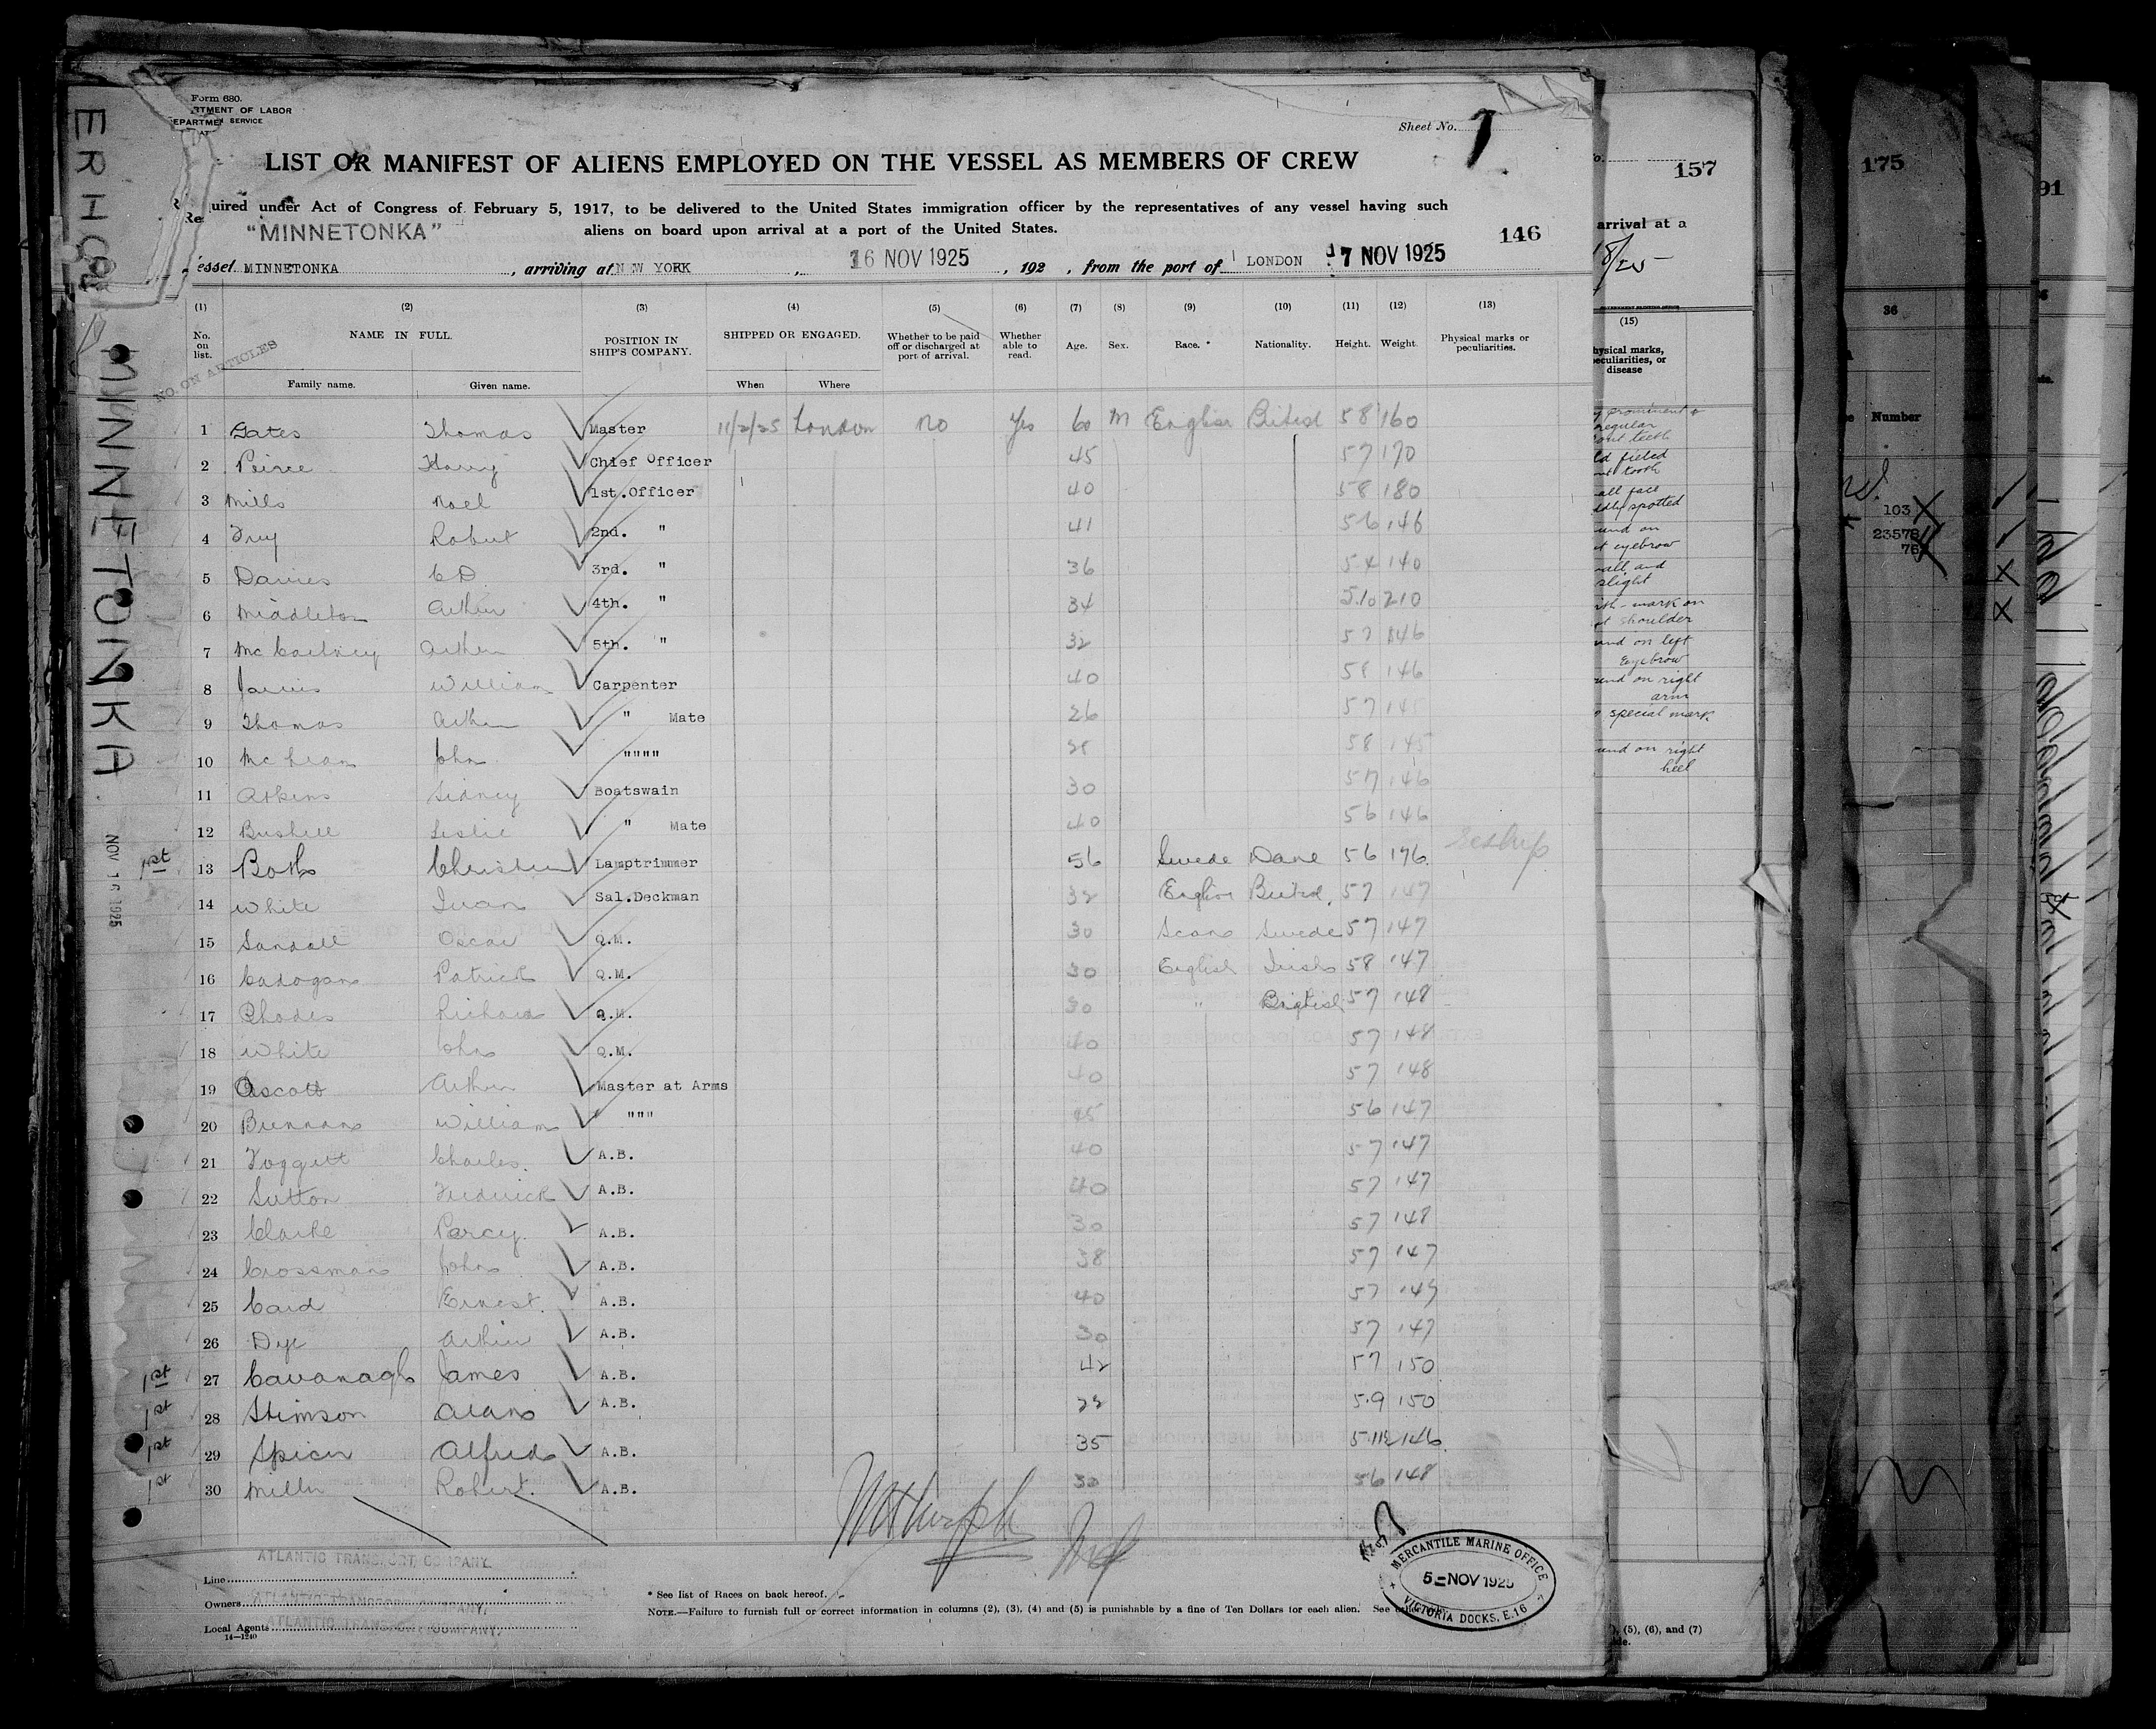 Form 680.
RTMENT OF LABOR
SERVICE
Sheet No. 1
LIST OR MANIFEST OF ALIENS EMPLOYED ON THE VESSEL AS MEMBERS OF CREW
uired under Act of Congress of February 5, 1917, to be delivered to the United States immigration officer by the representatives of any vessel having such
"MINNETONKA" aliens on board upon arrival at a port of the United States. 146
essel MINNETONKA, arriving at NEW YORK, 16 NOV 1925, 192 , from the port of LONDON 7 NOV 1925
(1) (2) (3) (4) (5) (6) (7) (8) (9) (10) (11) (12) (13)
No. on list. NAME IN FULL. POSITION IN SHIP'S COMPANY. SHIPPED OR ENGAGED. Whether to be paid off or discharged at port of arrival. Whether able to read. Age. Sex. Race. * Nationality. Height. Weight. Physical marks or peculiarities.
NO ON ARTICLES
Family name. Given name. When Where
1 Gates Thomas Master 11/2/25 London No Yes 60 M English British 58 160
2 Peirce Harry Chief Officer 45 57 170
3 Mills Noel 1st.Officer 40 58 180
4 Robert 2nd. " 41 56 146
5 Davies C D 3rd. " 36 5 4 140
6 Middleton Arthur 4th. " 34 5.10 210
7 McCartney Arthur 5th. " 32 57 146
8 William Carpenter 40 58 146
9 Thomas Arthur " Mate 26 57 145
10 McLean John """" 58 145
11 Atkins Sidney Boatswain 30 57 146
12 Bushell Leslie " Mate 40 56 146
1st 13 Christian Lamptrimmer 56 Swede Dane 56 176
14 White Sal.Deckman 32 English British 57 147
15 Sandall Oscar Q.M. 30 Scan Swede 57 147
16 Cadogan Patrick Q.M. 30 English Irish 58 147
17 Rhodes Richard Q.M. 30 " British 57 148
18 White John Q.M. 40 57 148
19 Ascott Arthur Master at Arms 40 57 148
20 Brennan William """ 45 56 147
21 Foggett Charles. A.B. 40 57 147
22 Sutton Frederick A.B. 40 57 147
23 Clarke Percy A.B. 30 57 148
24 Crossman John A.B. 38 57 147
25 Card Ernest. A.B. 40 57 149
26 Dye Arthur A.B. 30 57 147
1st 27 Cavanagh James A.B. 42 57 150
1st 28 Stimson Alan A.B. 5.9 150
1st 29 Spicer Alfred A.B. 35 146
1st 30 Miller Robert. A.B. 30 56 148
Line ATLANTIC TRANSPORT COMPANY.
Owners ATLANTIC TRANSPORT COMPANY.
Local Agents ATLANTIC TRANSPORT COMPANY.
14—1240
* See list of Races on back hereof.
NOTE.—Failure to furnish full or correct information in columns (2), (3), (4) and (5) is punishable by a fine of Ten Dollars for each alien. See
MERCANTILE MARINE OFFICE
5 – NOV 1925
VICTORIA DOCKS, E.16
MINNETONKA
NOV 16 1925
157
arrival at a
(15)
hysical marks, peculiarities, or disease
prominent
regular
teeth
tooth
face
spotted
eyebrow
and
slight
mark on
shoulder
on left
Eyebrow
on right
arm
special mark
on right
heel
(5), (6), and (7)
175
36
Number
103
23578
76
91